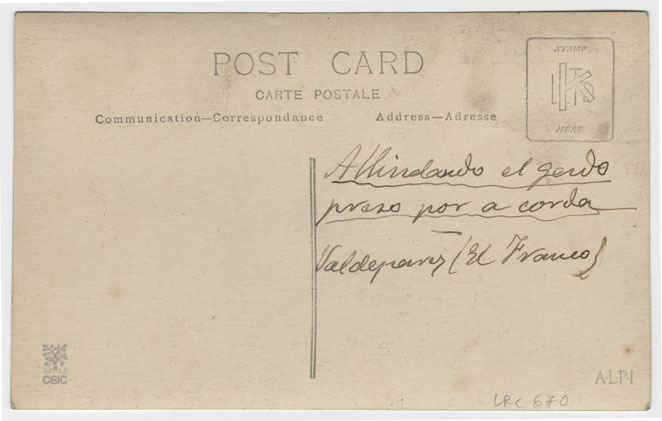 POST CARD
CARTE POSTALE
Communication—Correspondance
Address—Adresse
STAMP
HERE
Allindando el gando
preso por a corda
Valdepares (El Franco)
CSIC
A·L·P·I
LRC 670